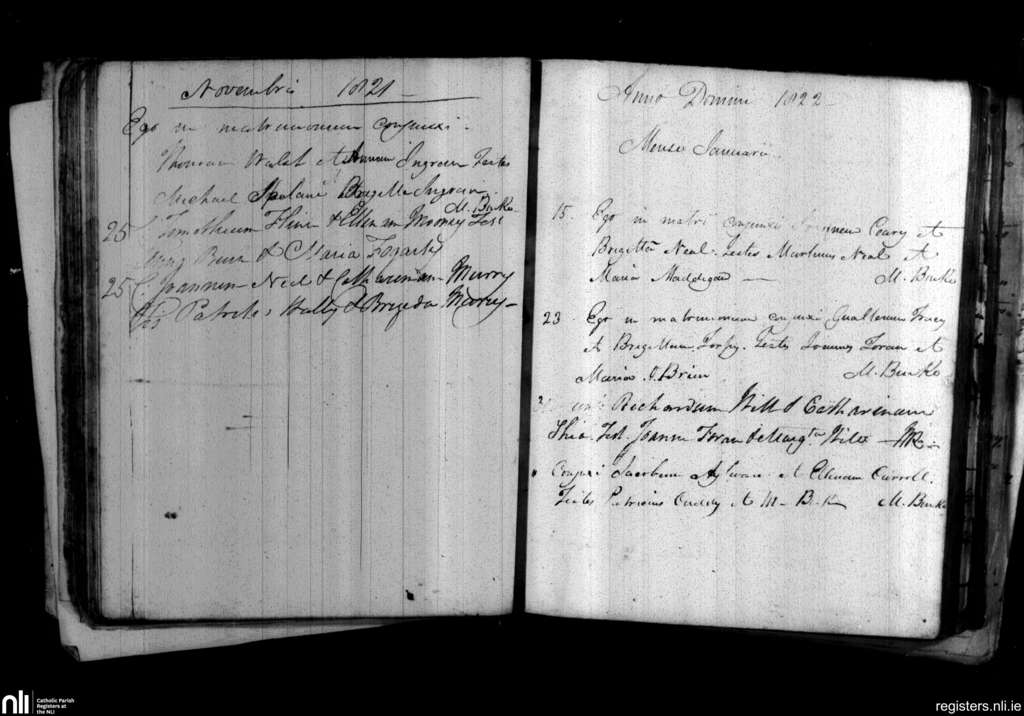 Novembris 1821
Ego in matrimonium conjunxi
Thomam Walsh et Annam Ingram Testes
Michael Spelane Brigitta Ingram
M. Burke
25 Timotheum Fline & Ellenam Mooney Test
Burn & Maria Fogarty
25 Joannem Neel & Catharinam Murry
Tes Patricks Wally & Brigeda Morey
Anno Domini 1822
Mense Januarii
15. Ego in matri conjunxi Geary et
Brigitta Neal. Testes Martinus Neal et
Maria Maddigan M. Burke
23 Ego in matrimonium conjunxi Gualterum Tracy
et Brigittam Torpy. Testes Joannes Foran et
Maria O Brien M. Burke
Richardum Hill & Catharinam
Shea Test. Joanne Foran & Margta Hill
Conjuxi Jacobum et Elenam Carroll.
Testes Patricius Cuddy et M. B M. Burke
nli Catholic Parish
Registers at
the NLI
registers.nli.ie